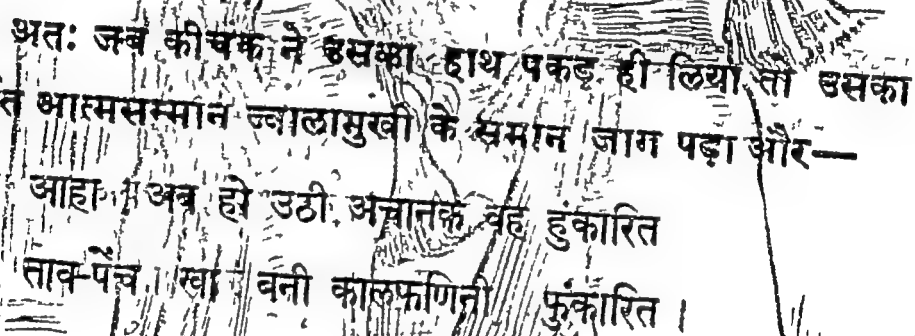 अतः जब कीचक ने उसका हाथ पकड़ ही लिया तो उसका
त आत्मसम्मान ज्वालामुखी के समान जाग पड़ा और—
आहा ! अब हो उठी अचानक वह हुंकारित
ताव-पेंच खा बनी कालफणिनी फुंकारित ।